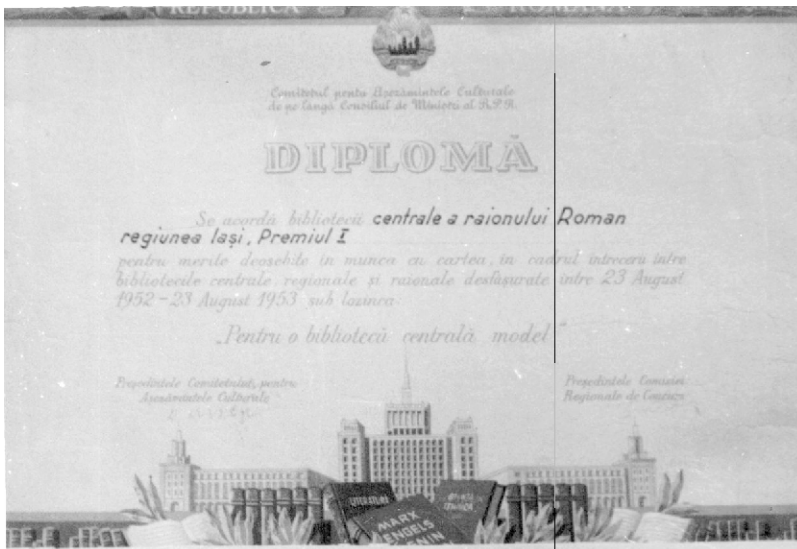 REPUBLICA ROMÂNĂ
Comitetul pentru Așezămintele Culturale
de pe lângă Consiliul de Miniștri al R.P.R.
DIPLOMĂ
Se acordă bibliotecii centrale a raionului Roman
regiunea Iași, Premiul I
pentru merite deosebite în munca cu cartea, în cadrul întrecerii între
bibliotecile centrale, regionale și raionale desfășurate între 23 August
1952-23 August 1953 sub lozinca:
„Pentru o bibliotecă centrală model"
Președintele Comitetului pentru
Așezămintele Culturale
Președintele Comisiei
Regionale de Concurs
LITERATURA
MARX
ENGELS
LENIN